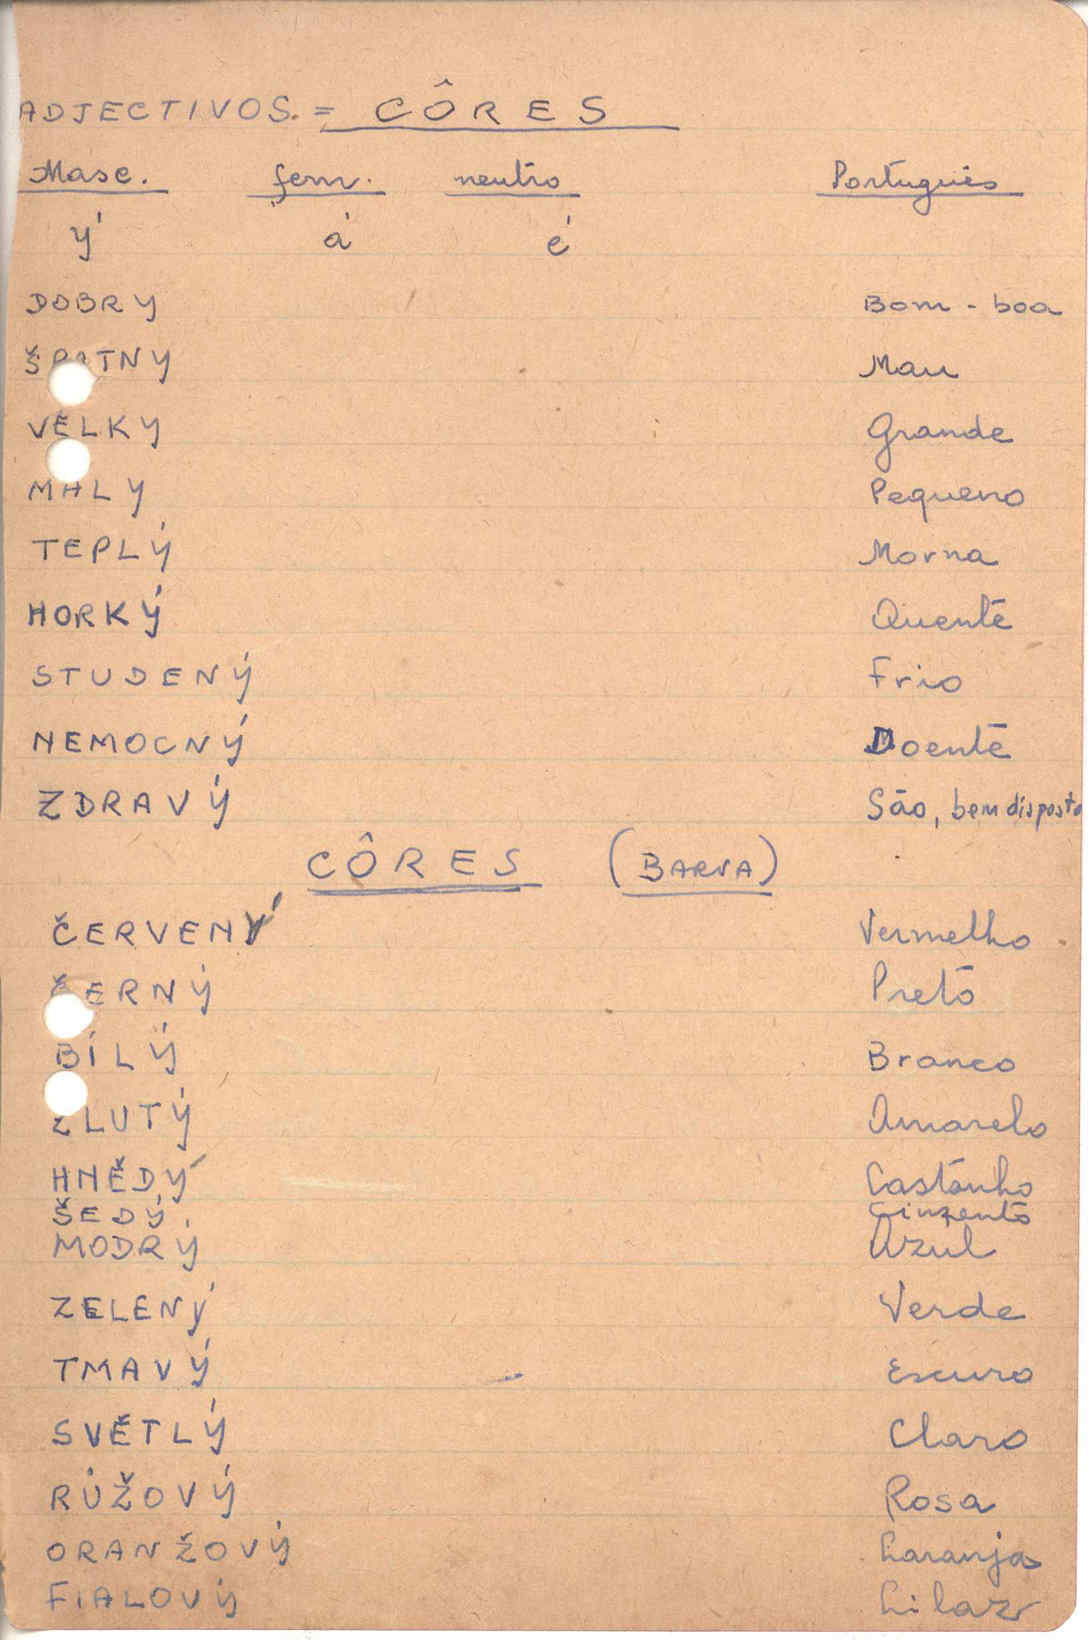 ADJECTIVOS. = CÔRES
Masc. fem. neutro Português
ý á é
DOBRY Bom - boa
ŠPATNY Mau
VELKY Grande
MALY Pequeno
TEPLÝ Morna
HORKÝ Quente
STUDENÝ Frio
NEMOCNÝ Doente
ZDRAVÝ São, bem disposto
CÔRES (BARVA)
ČERVENÝ Vermelho
ČERNÝ Preto
BÍLÝ Branco
ŽLUTÝ Amarelo
HNĚDÝ Castanho
ŠEDÝ. Cinzento
MODRÝ Azul
ZELENÝ Verde
TMAVÝ Escuro
SVĚTLÝ Claro
RŮŽOVÝ Rosa
ORANŽOVÝ Laranja
FIALOVÝ Lilaz